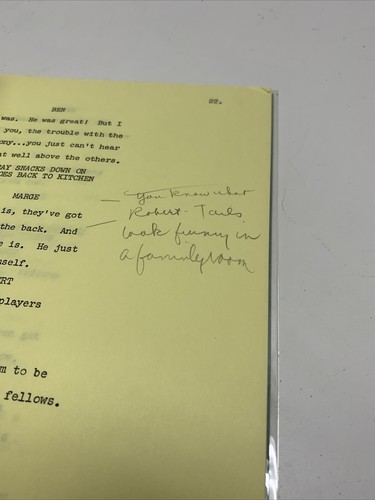 22.
BEN
was. He was great! But I
you, the trouble with the
ony...you just can't hear
at well above the others.
AY SNACKS DOWN ON
OES BACK TO KITCHEN
MARGE
is, they've got
the back. And
e is. He just
mself.
RT
players
m to be
fellows.
You know what
Robert - Tails
look funny in
a family room